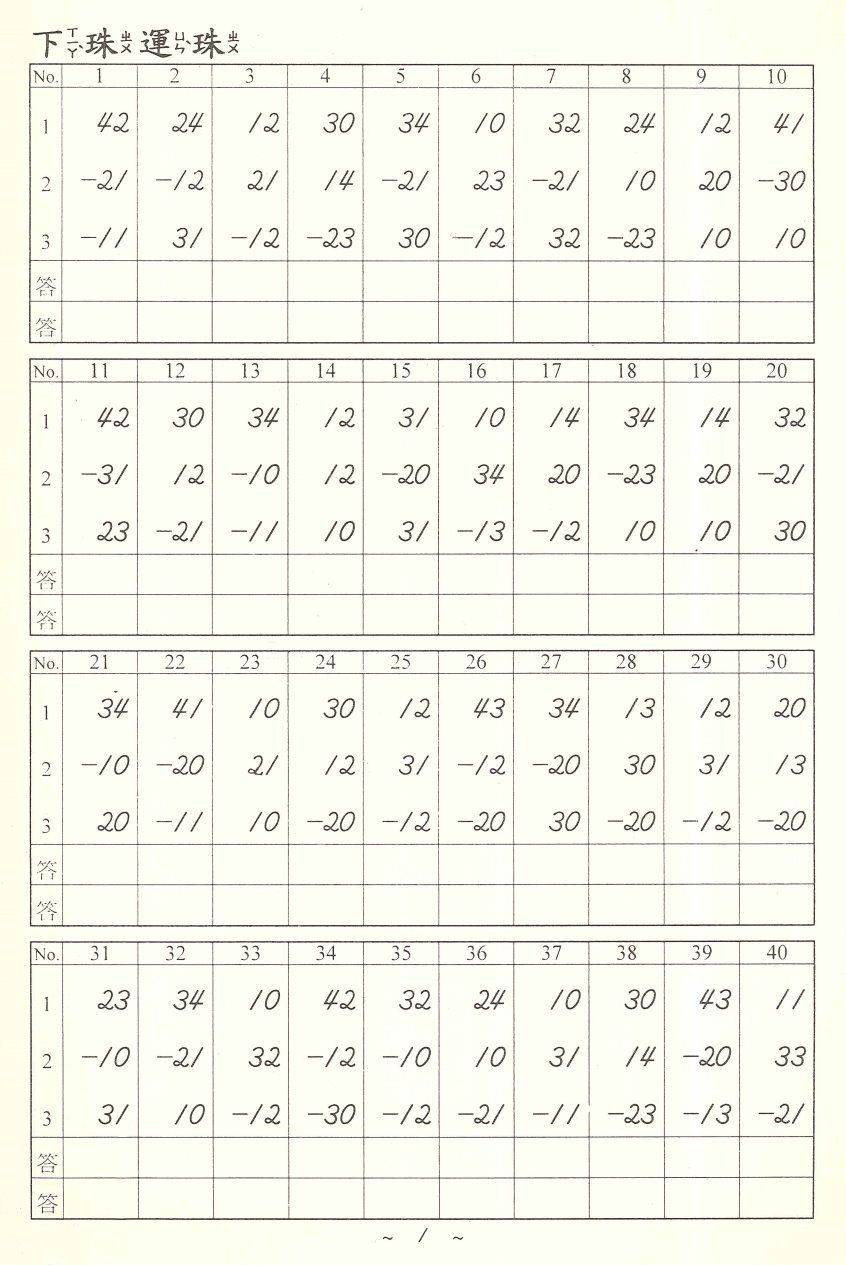 下ㄒㄧㄚˋ珠ㄓㄨ運ㄩㄣˋ珠ㄓㄨ
No. 1 2 3 4 5 6 7 8 9 10
1 42 24 12 30 34 10 32 24 12 41
2 -21 -12 21 14 -21 23 -21 10 20 -30
3 -11 31 -12 -23 30 -12 32 -23 10 10
答
答
No. 11 12 13 14 15 16 17 18 19 20
1 42 30 34 12 31 10 14 34 14 32
2 -31 12 -10 12 -20 34 20 -23 20 -21
3 23 -21 -11 10 31 -13 -12 10 10 30
答
答
No. 21 22 23 24 25 26 27 28 29 30
1 34 41 10 30 12 43 34 13 12 20
2 -10 -20 21 12 31 -12 -20 30 31 13
3 20 -11 10 -20 -12 -20 30 -20 -12 -20
答
答
No. 31 32 33 34 35 36 37 38 39 40
1 23 34 10 42 32 24 10 30 43 11
2 -10 -21 32 -12 -10 10 31 14 -20 33
3 31 10 -12 -30 -12 -21 -11 -23 -13 -21
答
答
~ 1 ~